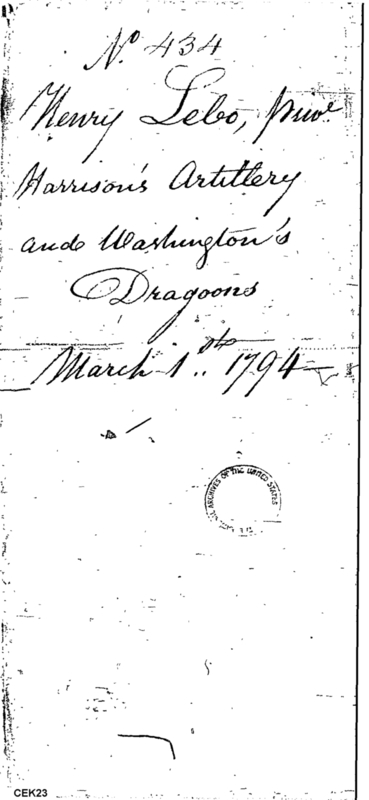 No. 434
Henry Lebo, privt
Harrison's Artillery
and Washington's
Dragoons
March 1.. st 1794
ARCHIVES OF THE UNITED STATES
CEK23